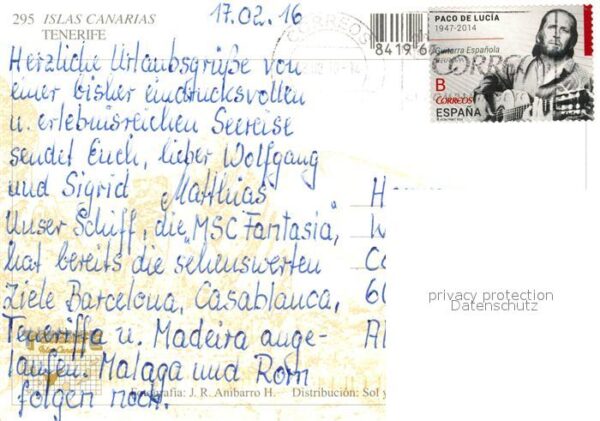 17.02.16
295 ISLAS CANARIAS
TENERIFE
Herzliche Urlaubsgrüße von
einer bisher eindrucksvollen
u. erlebnisreichen Seereise
sendet Euch, lieber Wolfgang
und Sigrid Matthias
Unser Schiff, die "MSC Fantasia",
hat bereits die sehenswerten
Ziele Barcelona, Casablanca,
Teneriffa u. Madeira ange-
laufen. Malaga und Rom
folgen noch.
J. R. Anibarro H. Distribución: Sol y
CORREOS
8419 60
PACO DE LUCÍA
1947-2014
Guitarra Española
CORREOS
B
CORREOS
ESPAÑA
60
privacy protection
Datenschutz